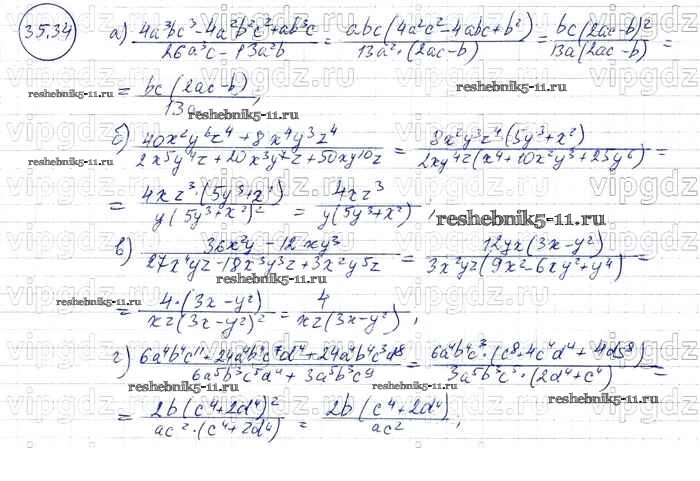 35.34
а) (4a³bc³ - 4a²b²c² + ab³c)/(26a³c - 13a²b) = abc(4a²c² - 4abc + b²)/(13a²·(2ac - b)) = bc(2ac - b)²/(13a(2ac - b)) =
= bc(2ac - b)/13a,
reshebnik5-11.ru
б) (40x²y⁶z⁴ + 8x⁴y³z⁴)/(2x⁵y⁴z + 20x³y⁷z + 50xy¹⁰z) = 8x²y³z⁴·(5y³ + x²)/(2xy⁴z(x⁴ + 10x²y³ + 25y⁶)) =
= 4xz³·(5y³ + x²)/(y(5y³ + x²)²) = 4xz³/(y(5y³ + x²)),
reshebnik5-11.ru
в) (36x²y - 12xy³)/(27x⁴yz - 18x³y³z + 3x²y⁵z) = 12yx(3x - y²)/(3x²yz(9x² - 6xy² + y⁴)) =
= 4·(3x - y²)/(xz(3x - y²)²) = 4/(xz(3x - y²)),
reshebnik5-11.ru
г) (6a⁴b⁴c¹¹ + 24a⁴b⁴c⁷d⁴ + 24a⁴b⁴c³d⁸)/(6a⁵b³c⁵d⁴ + 3a⁵b³c⁹) = 6a⁴b⁴c³·(c⁸ + 4c⁴d⁴ + 4d⁸)/(3a⁵b³c⁵·(2d⁴ + c⁴)) =
= 2b(c⁴ + 2d⁴)²/(ac²·(c⁴ + 2d⁴)) = 2b(c⁴ + 2d⁴)/ac²,
reshebnik5-11.ru